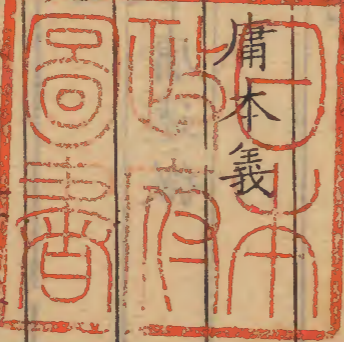 庸本義
日本
政府
圖書